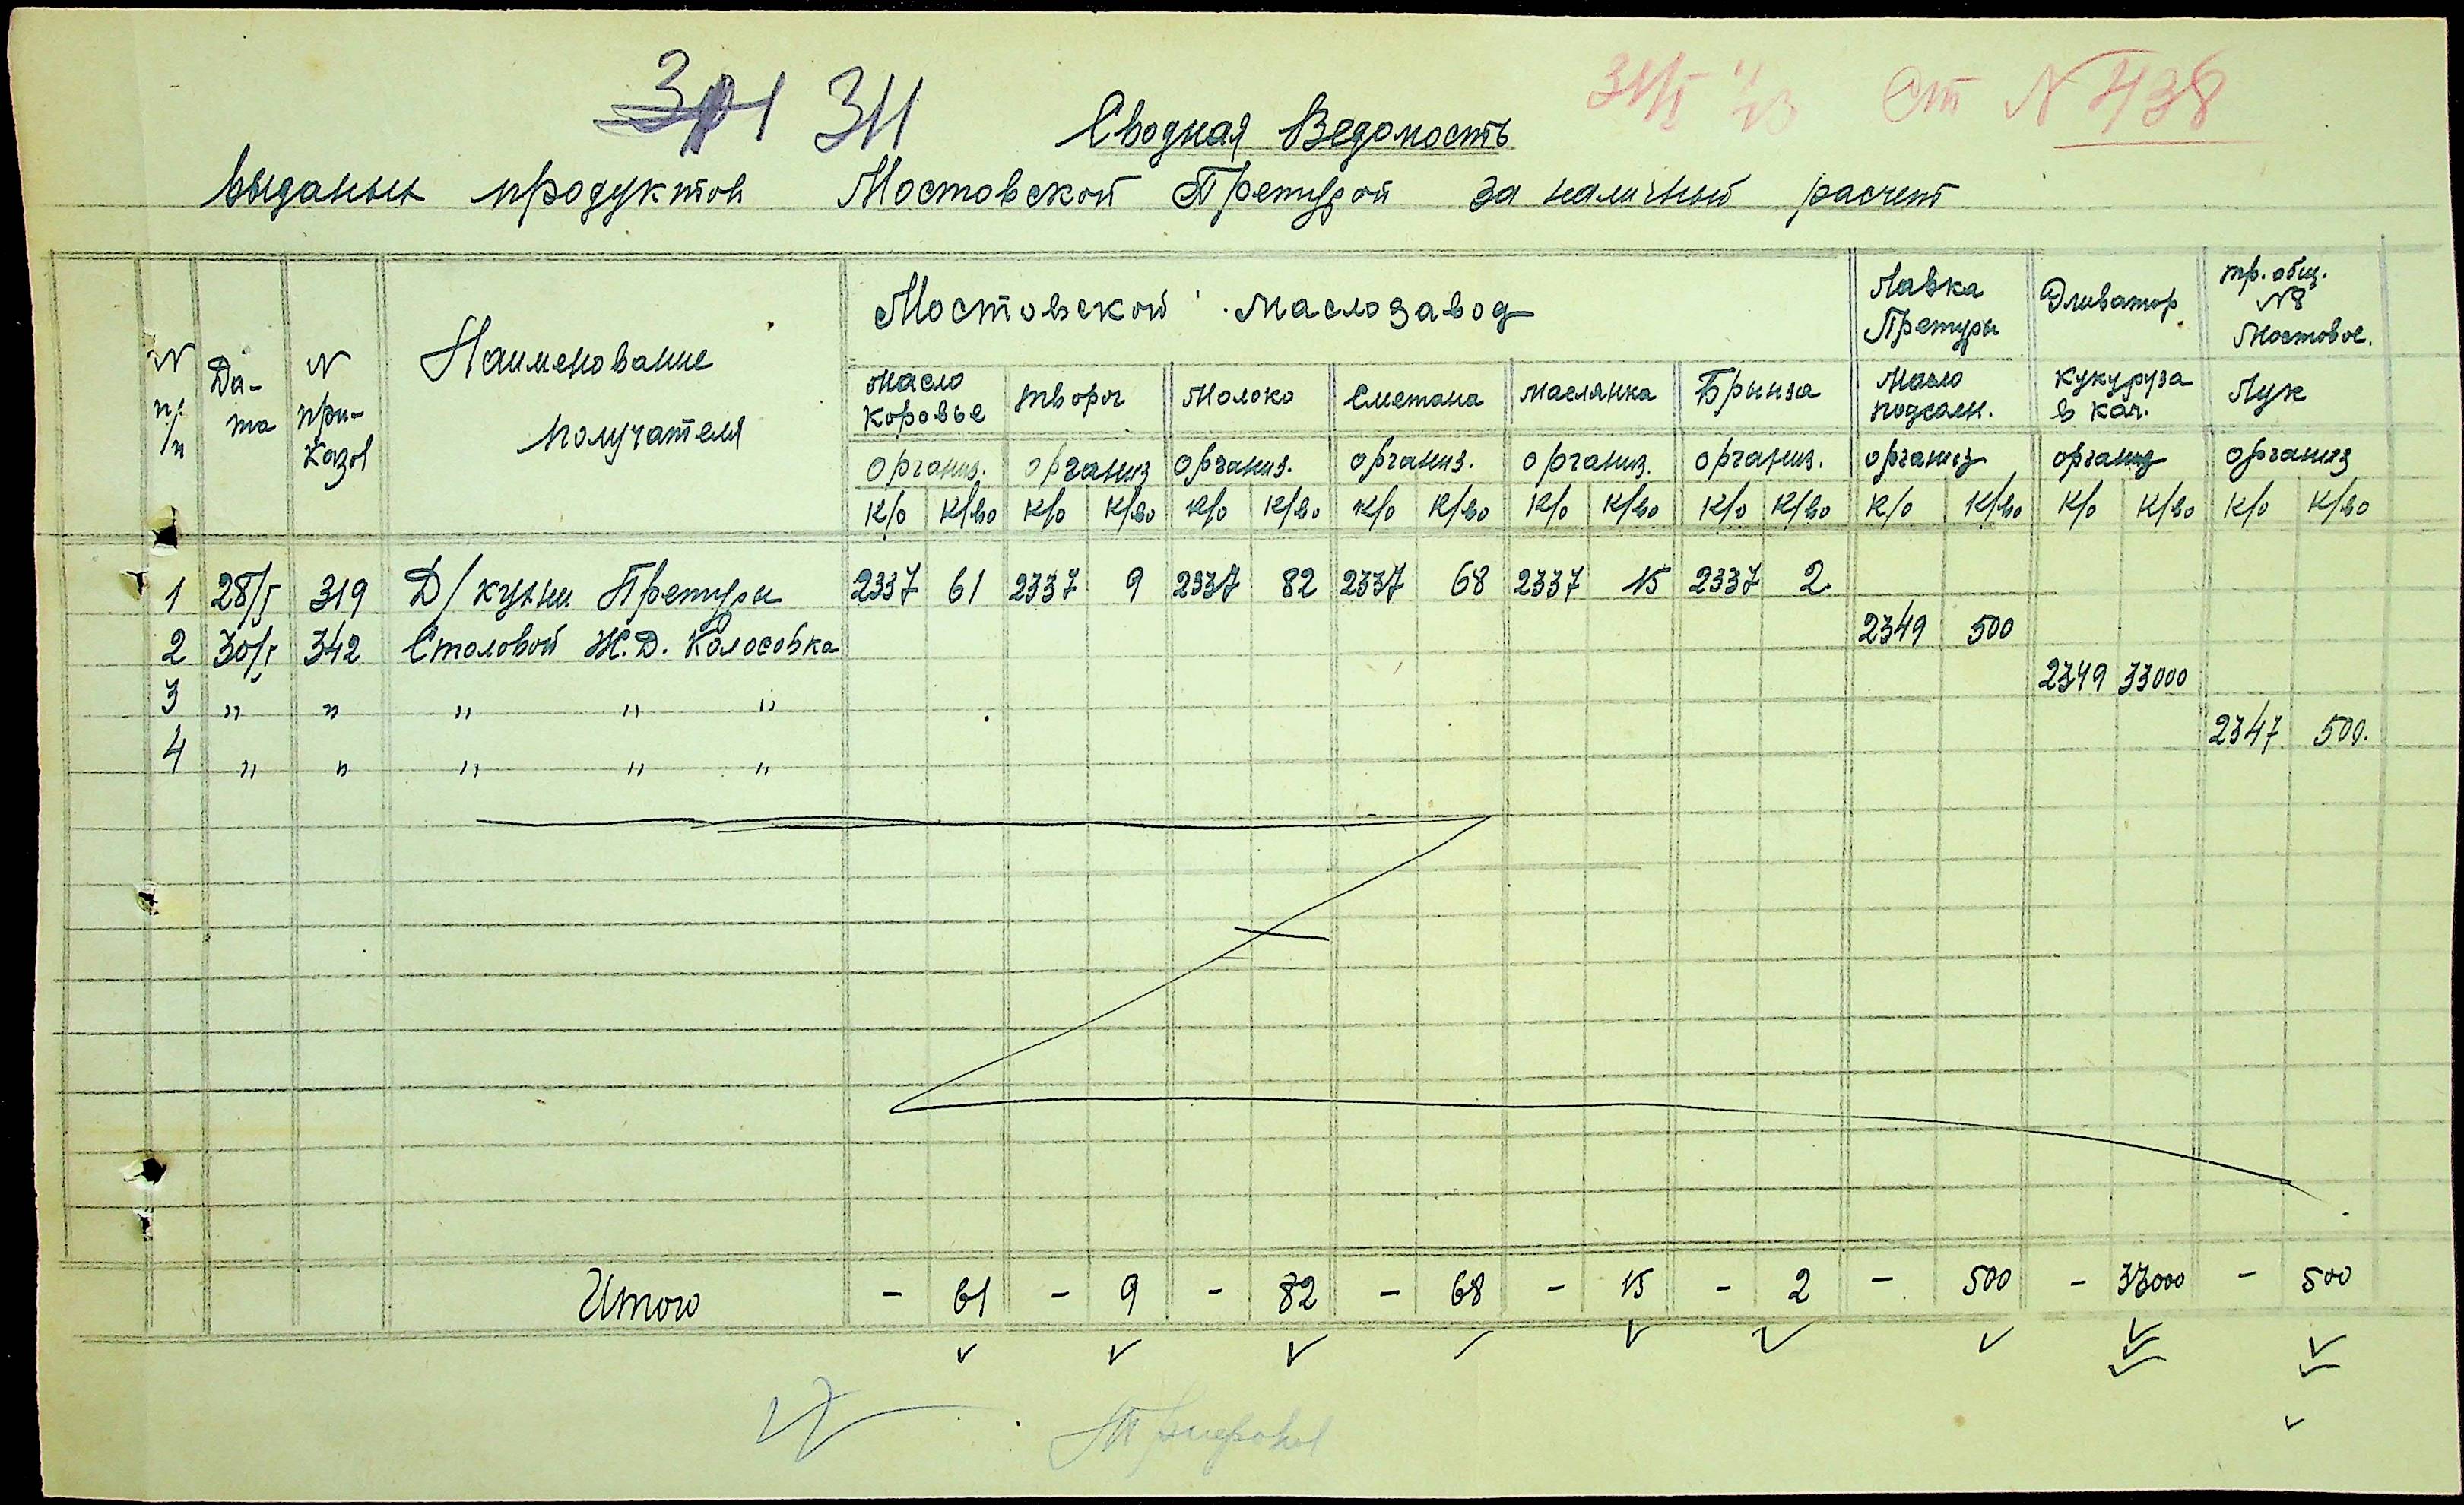 311
Сводная Ведомость
Ст N 438
выданых продуктов Мостовской Претурой за наличный расчет
N п/п Да-та N при-казов Наименование получателя Мостовской маслозавод Лавка Претуры Эливатор тр. общ. N8 Мостовое.
Масло коровье творог Молоко Сметана маслянка Брынза Масло подсолн. кукуруза в кач. Лук
организ. организ организ. организ. организ. организ. организ организ организ
к/о к/во к/о к/во к/о к/во к/о к/во к/о к/во к/о к/во к/о к/во к/о к/во к/о к/во
1 28/I 319 Д/кухни Претуры 2337 61 2337 9 2337 82 2337 68 2337 15 2337 2
2 30/I 342 Столовой Ж.Д. Колосовка 2349 500
3 " " " " " 2349 33000
4 " " " " " 2347 500.
Итого - 61 - 9 - 82 - 68 - 15 - 2 - 500 - 33000 - 500